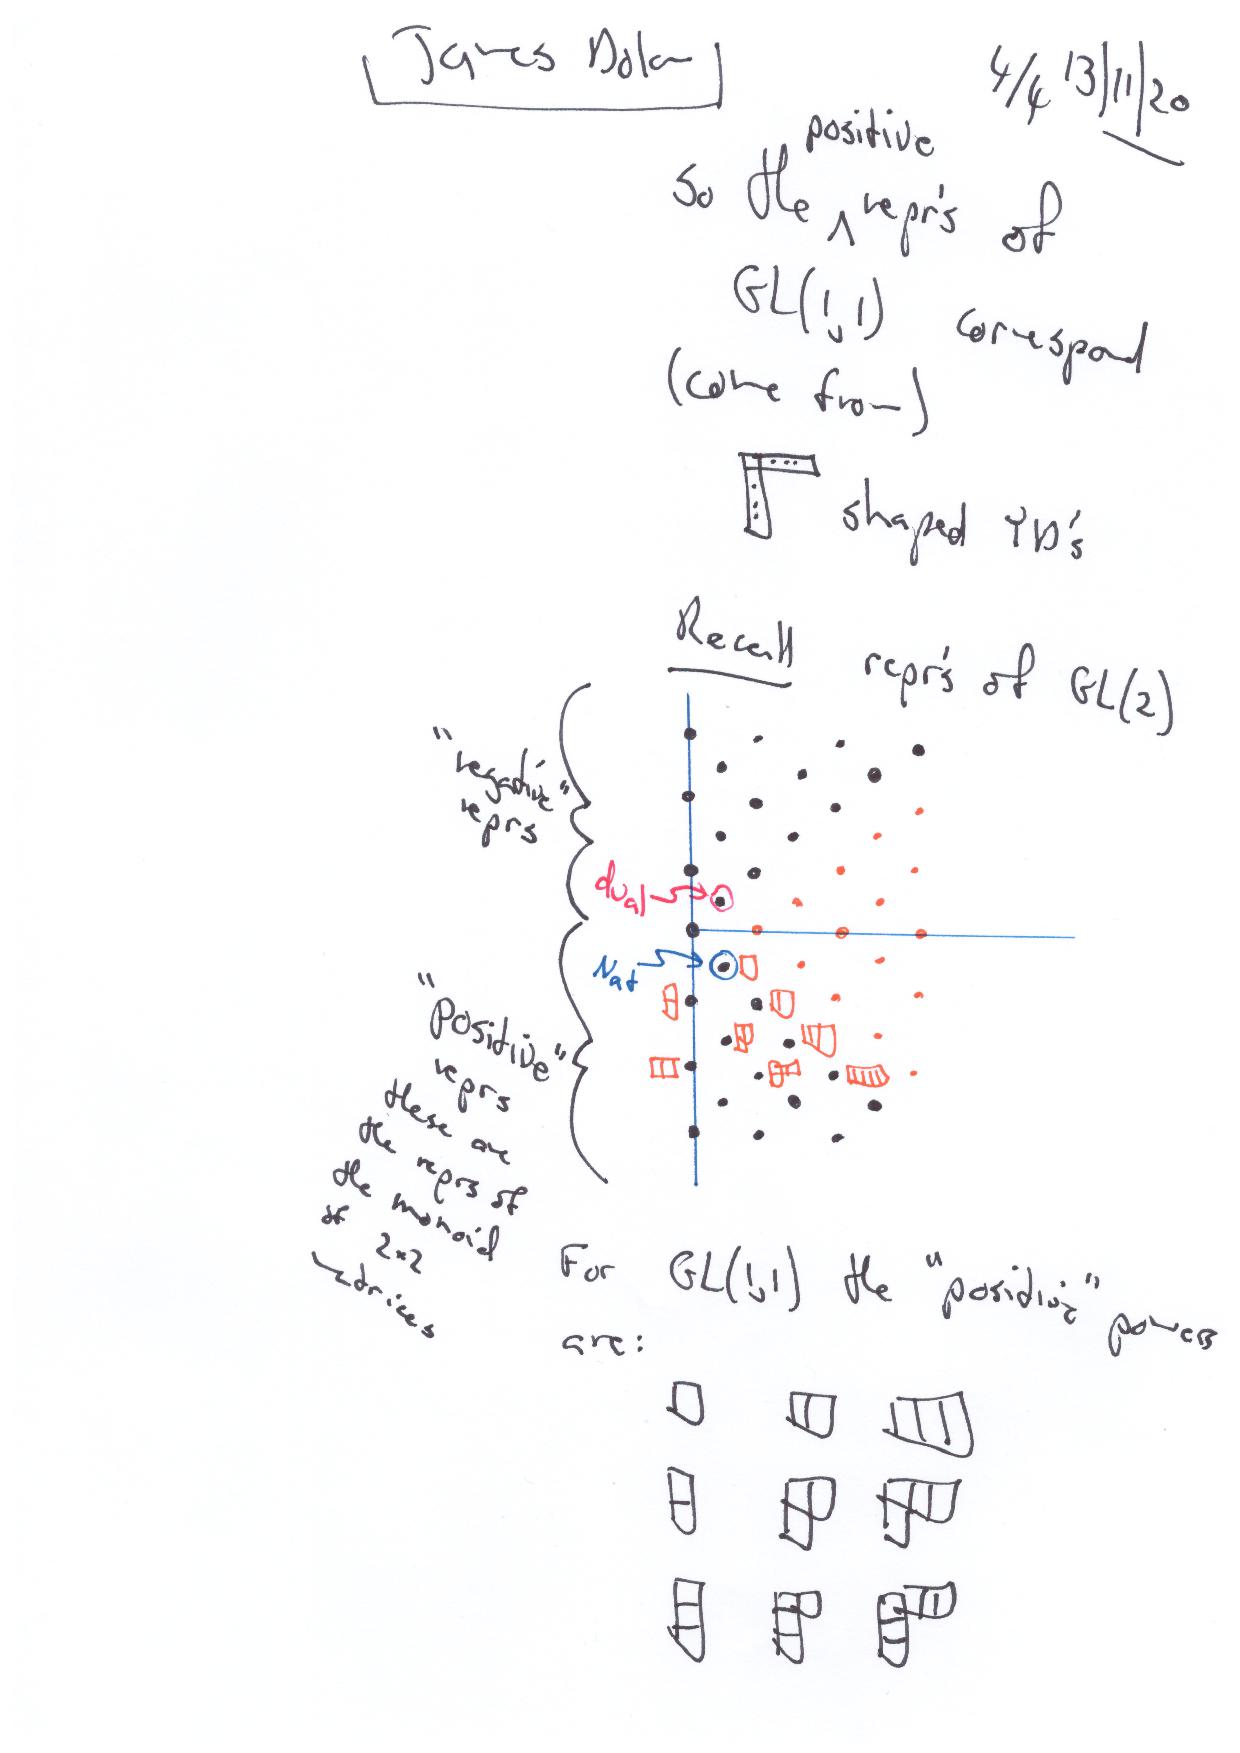 James Dolan
4/4 13/11/20
positive
So the ∧ repr's of
GL(1,1) correspond
(come from)
shaped YD's
Recall repr's of GL(2)
"negative"
reprs
dual
Nat
"Positive"
reprs
these are
the reprs of
the monoid
of 2×2
matrices
For GL(1,1) the "positive" powers
are: